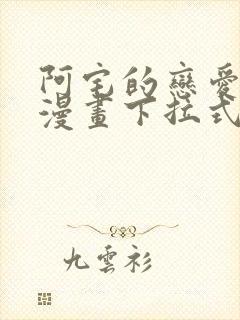 阿宅的戀愛
漫畫下拉式
九雲衫